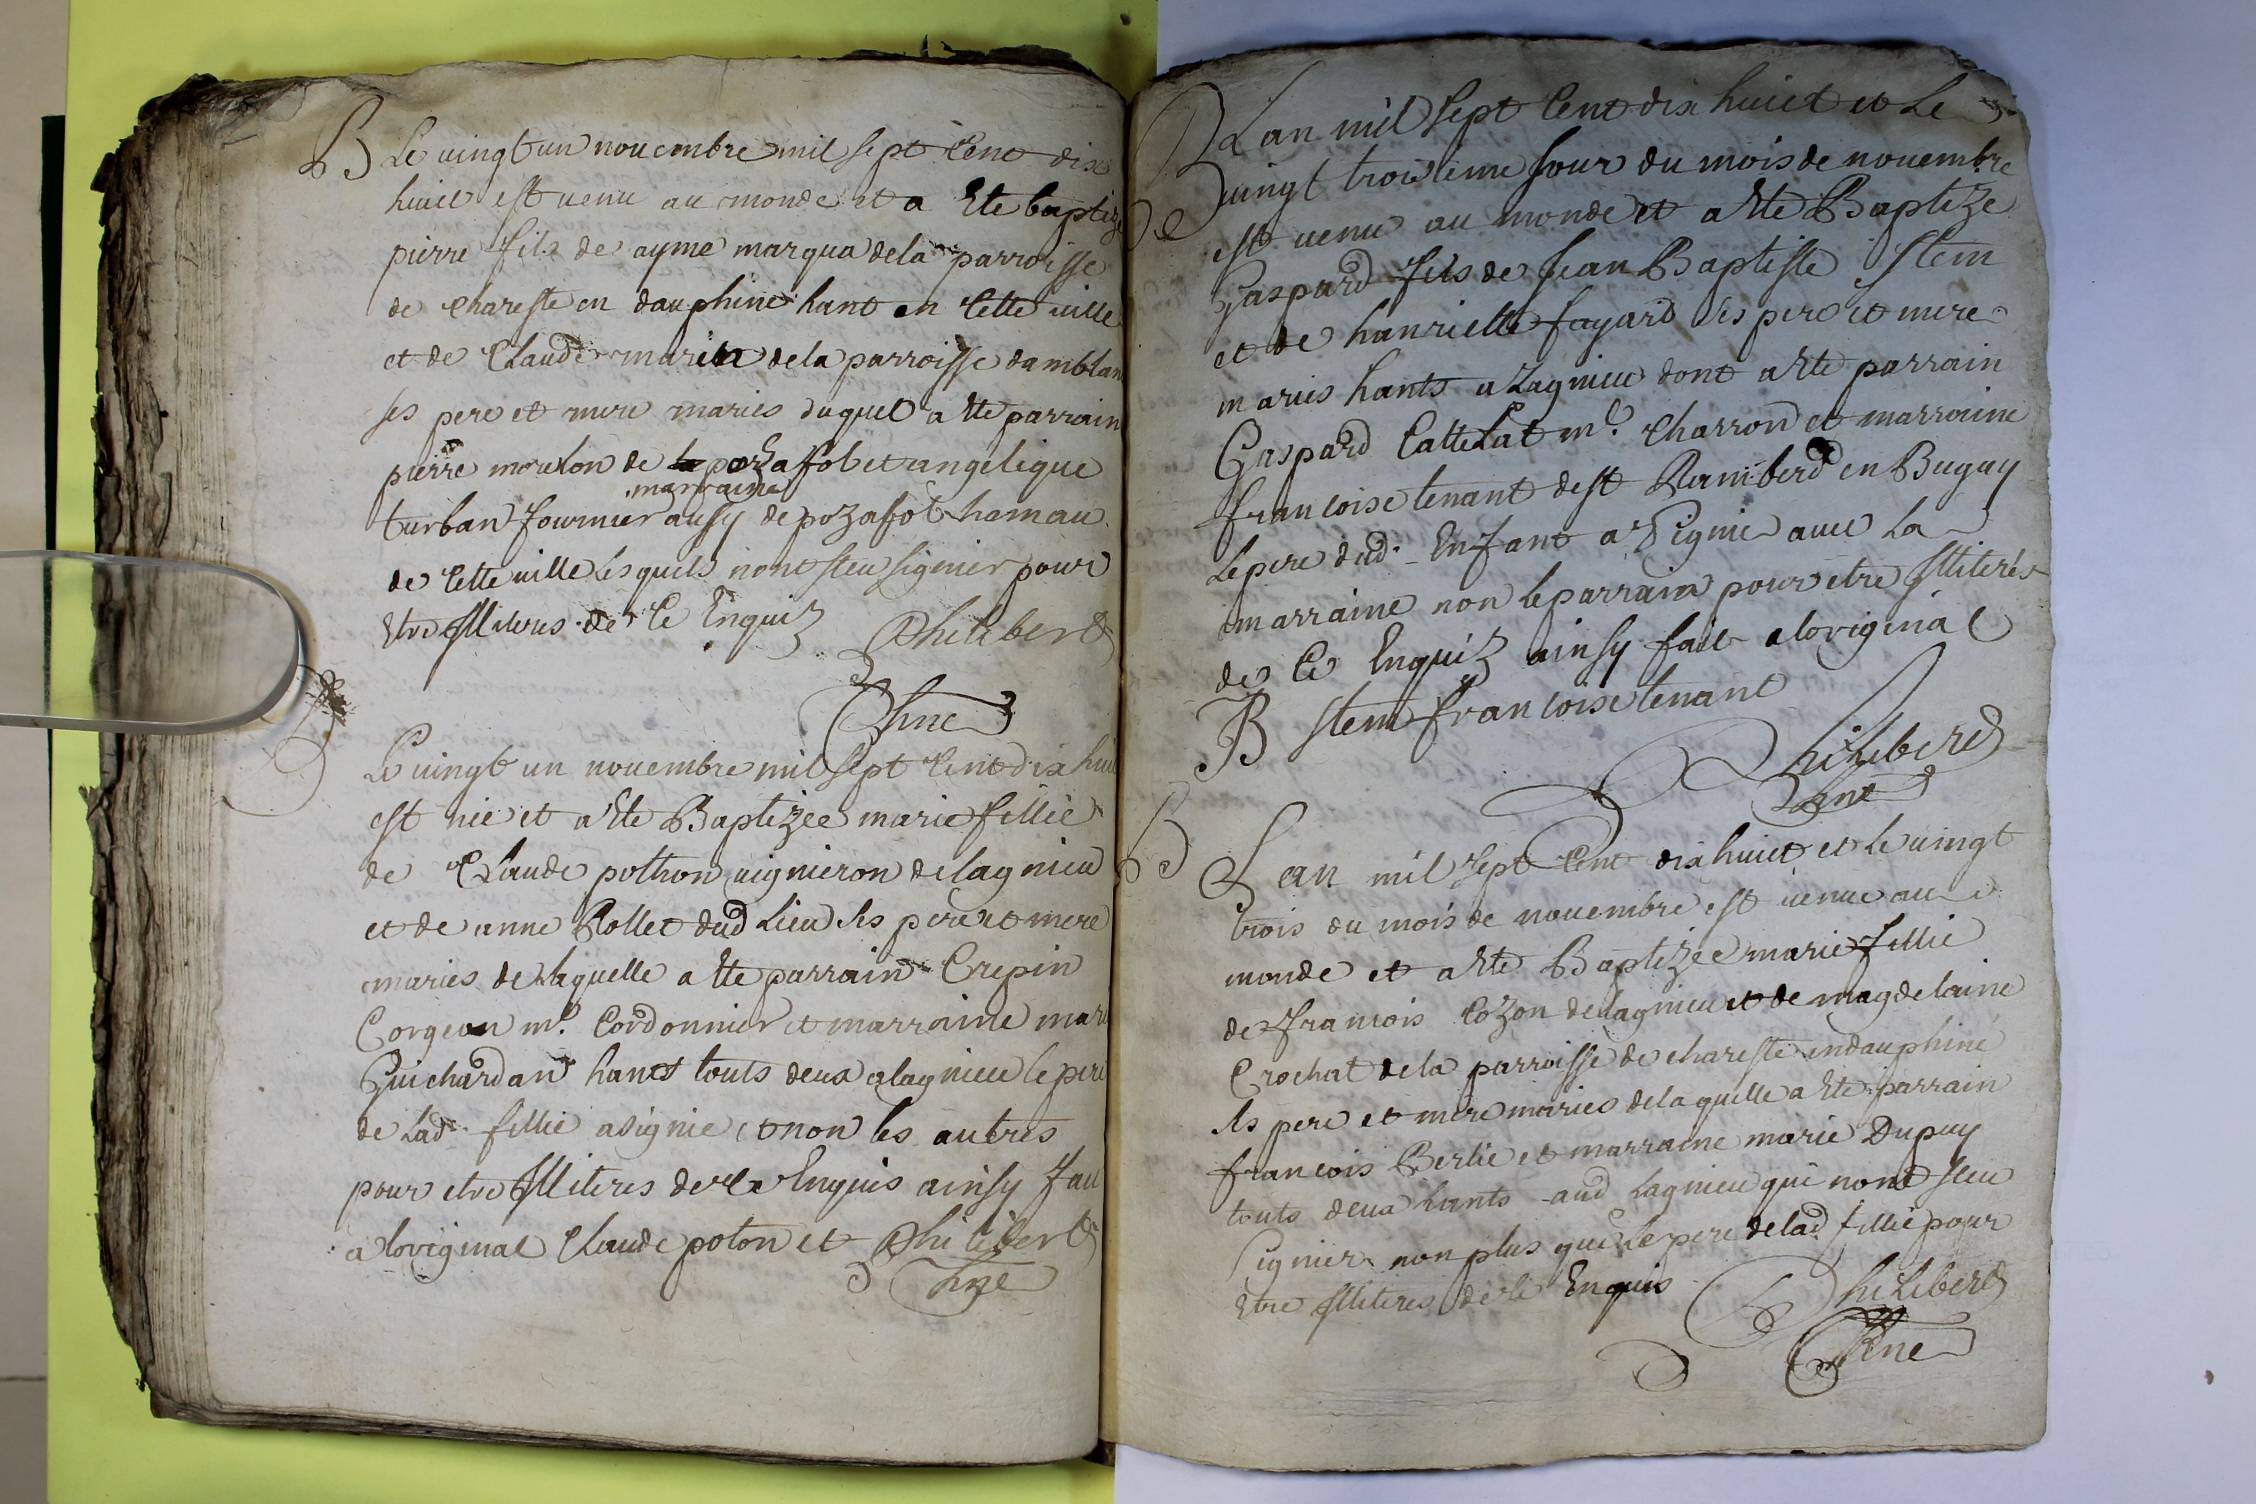 B Le uingt un nouembre mil sept cent dix
huict est uenu au monde et a ete baptize
pierre fils de ayme marqua dela parroisse
de chareste en dauphine hant en cette uille
et de Claude marin dela parroisse damblan
ses pere et mere maries duquel a ete parrain
pierre moulon de pozafol et angelique
marraine
turban fournier aussy de pozafol hamau
de cette uille lesquels nont sceu signier pour
etre illiteres de ce Enquis Philibert
Cure
Le uingt un nouembre mil sept cent dix huict
est nie et a ete Baptizee marie fillie
de Claude pothon uignieron de lagnieu
et de anne Rollet dud Lieu ses pere et mere
maries de laquelle a ete parrain Crepin
Corgeon m.e Cordonnier et marraine marie
Guichardan hants touts deux a lagnieu le pere
de Lad.e fillie a signie et non les autres
pour etre illiteres de ce Enquis ainsy fait
a loriginal Claude poton et Philibert
Cure
B Lan mil sept Cent dix huict et Le
uingt troisieme Jour du mois de nouembre
est uenu au monde et a ete Baptize
Gaspard fils de Jean Baptiste Stem
et de hanriette fayard ses pere et mere
maries hants a Lagnieu dont a ete parrain
Gaspard Cattelat m.e Charron et marraine
francoise tenant de st Ramberd en Bugay
Le pere dud. Enfant a signie auec La
marraine non le parrain pour etre illiteres
de Ce Enquis ainsy fait a loriginal
B Stem francoise tenant
Philiberd
Cure
B Lan mil sept Cent dix huict et Le uingt
trois du mois de nouembre est uenue au
monde et a ete Baptizee marie fillie
de francois Cozon de lagnieu et de magdelaine
Crochat de la parroisse de chareste en dauphiné
ses pere et mere maries de laquelle a ete parrain
francois Berlie et marraine marie Dupuy
touts deux hants aud Lagnieu qui nont sceu
signier non plus que Le pere de lad. fillie pour
etre illiteres de ce Enquis Philiberd
Cure